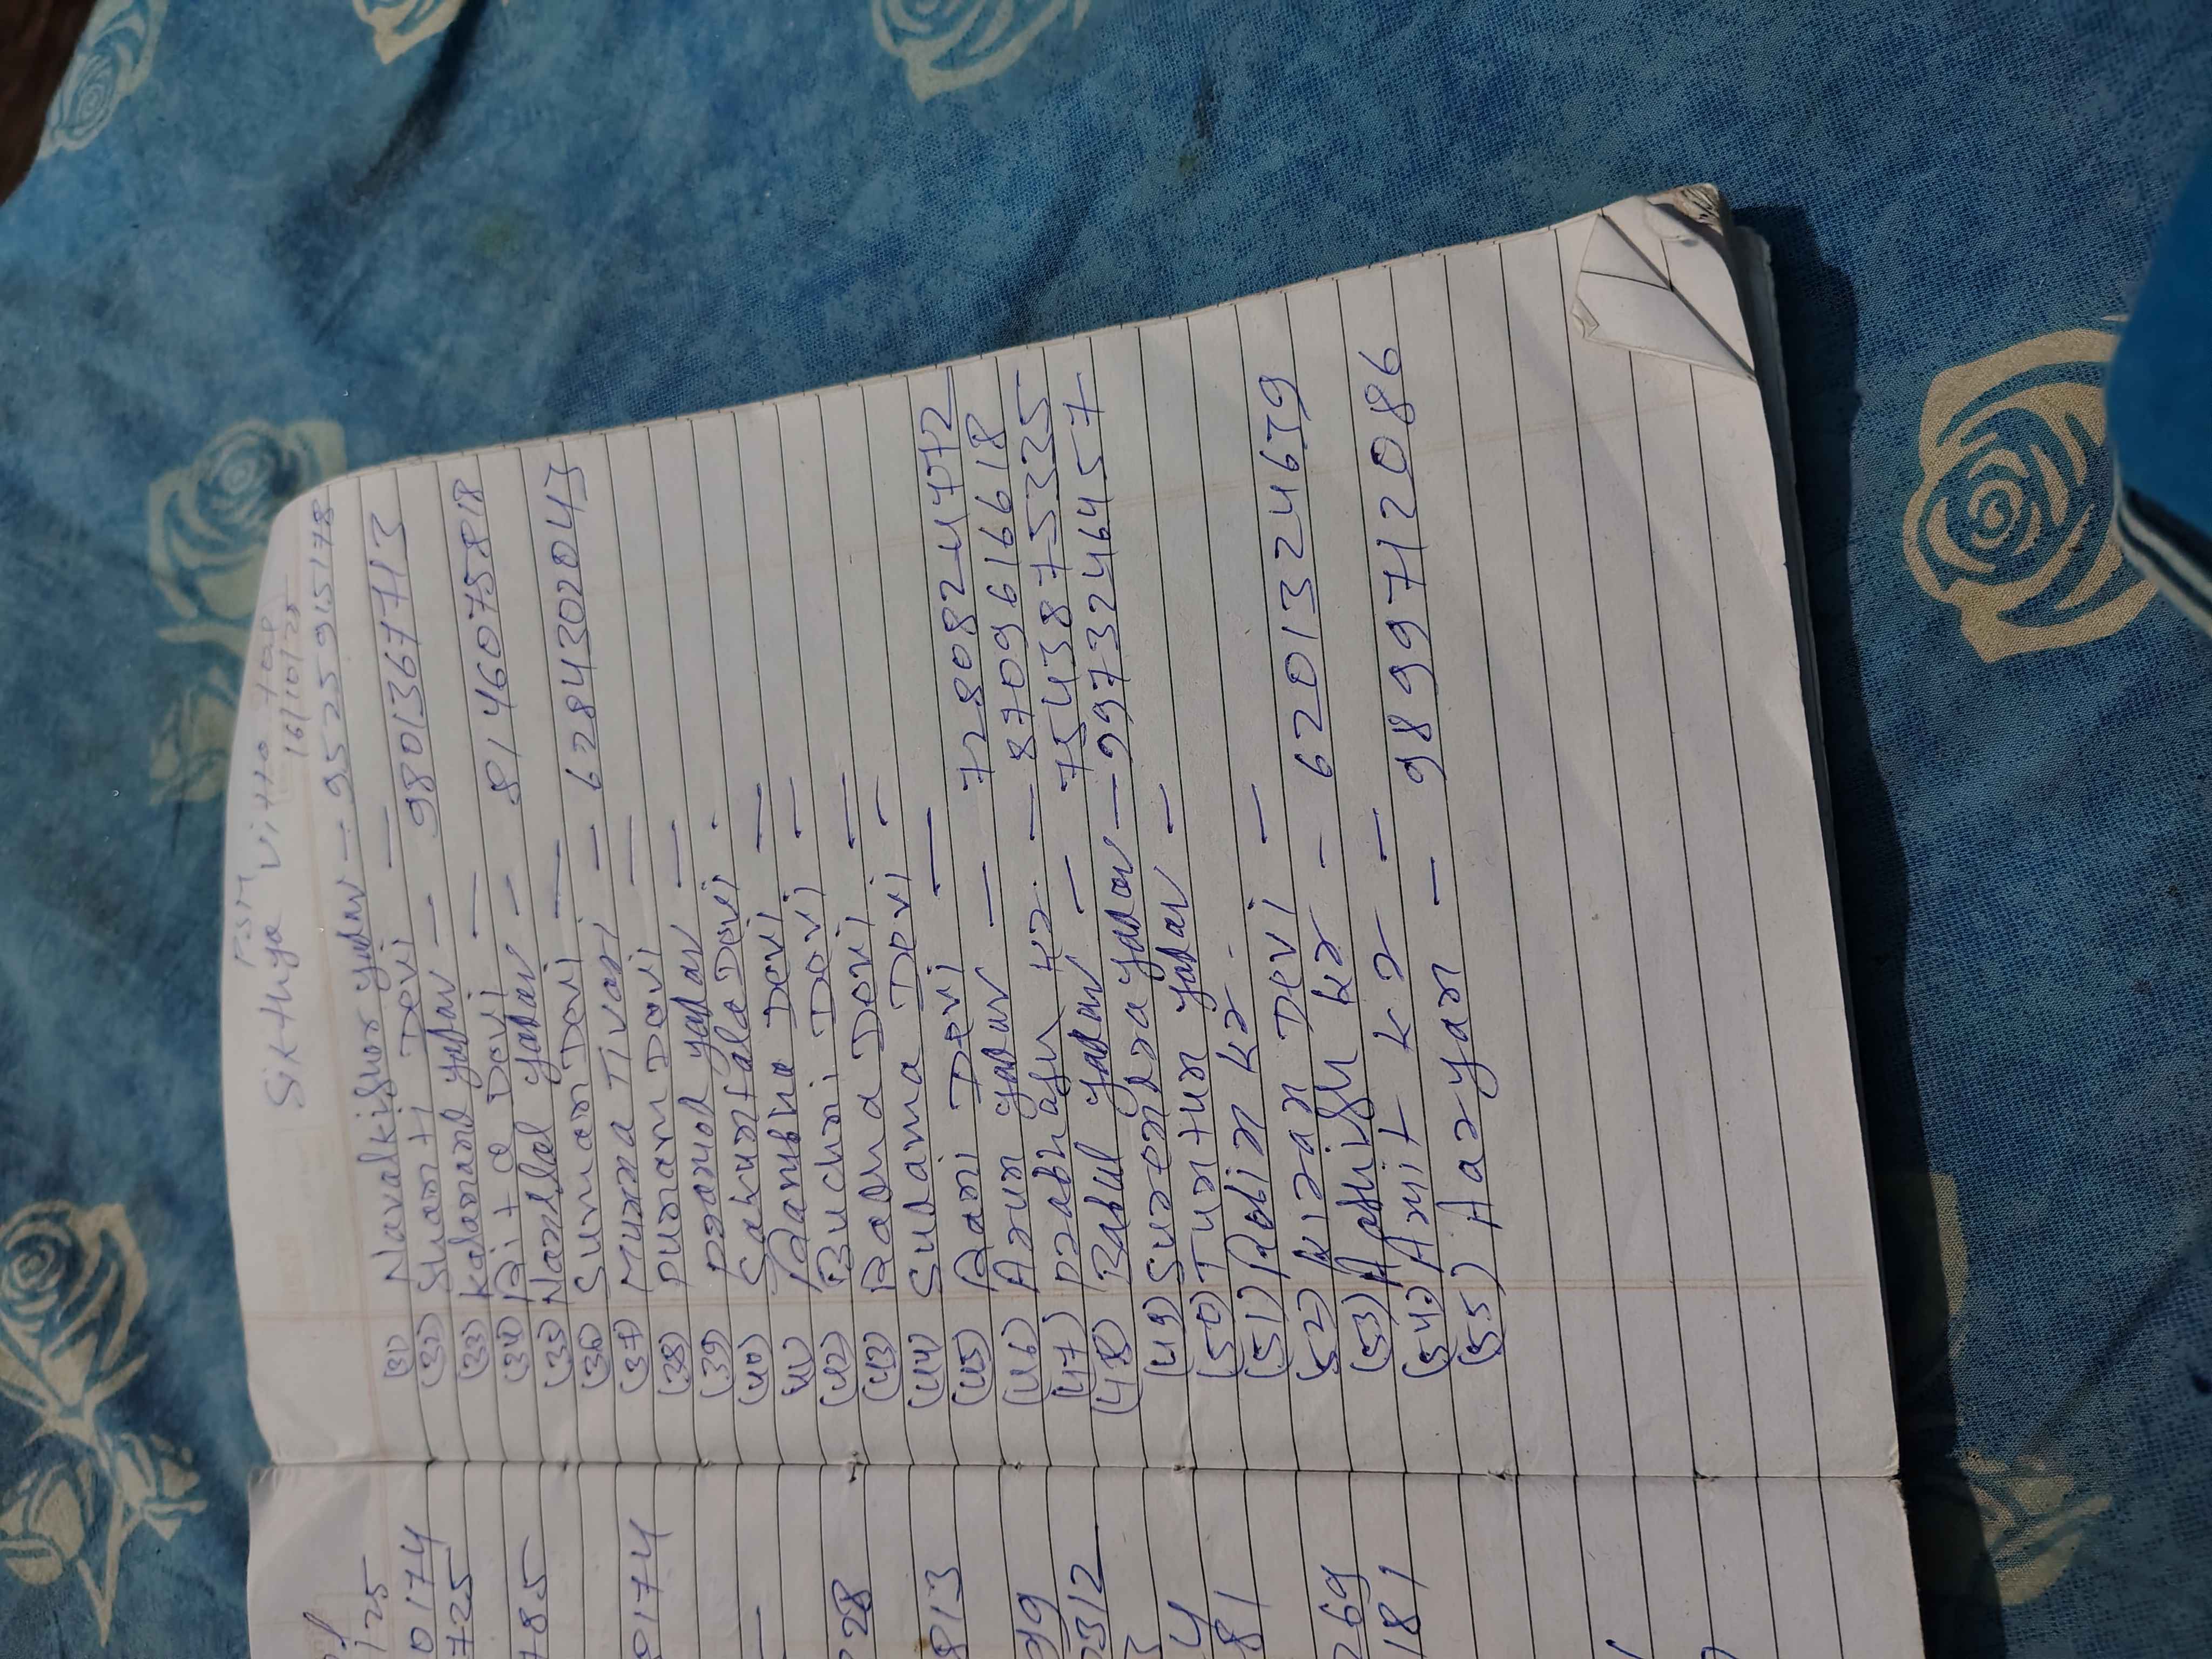 PSM
Sikthya Vitto tola
16/10/25
(31) Navalkishor yadav - 9525915178
(32) Shanti Devi -
(33) kalanand yadav - 9801367713
(34) Rita Devi -
(35) Nandlal yadav - 8146075818
(36) Suman Devi -
(37) Munna Tivari - 6284302043
(38) punam Devi -
(39) pramod yadav -
(40) Sakuntala Devi .
(41) Rambha Devi -
(42) Buchni Devi -
(43) Radha Devi -
(44) Sudama Devi -
(45) Rani Devi -
(46) Arun yadav - 7280824772
(47) prabhash kr. - 8709616618
(48) Bablul yadav - 7543875325
(49) Surendra yadav - 9973246457
(50) Tuntun yadav -
(51) Robin kr.
(52) Kiran Devi -
(53) Ashish kr - 6201324639
(54) Amit kr -
(55) Aaryan - 9899712086
125
0174
725
785
8174
-
28
813
99
2312
4
81
269
181